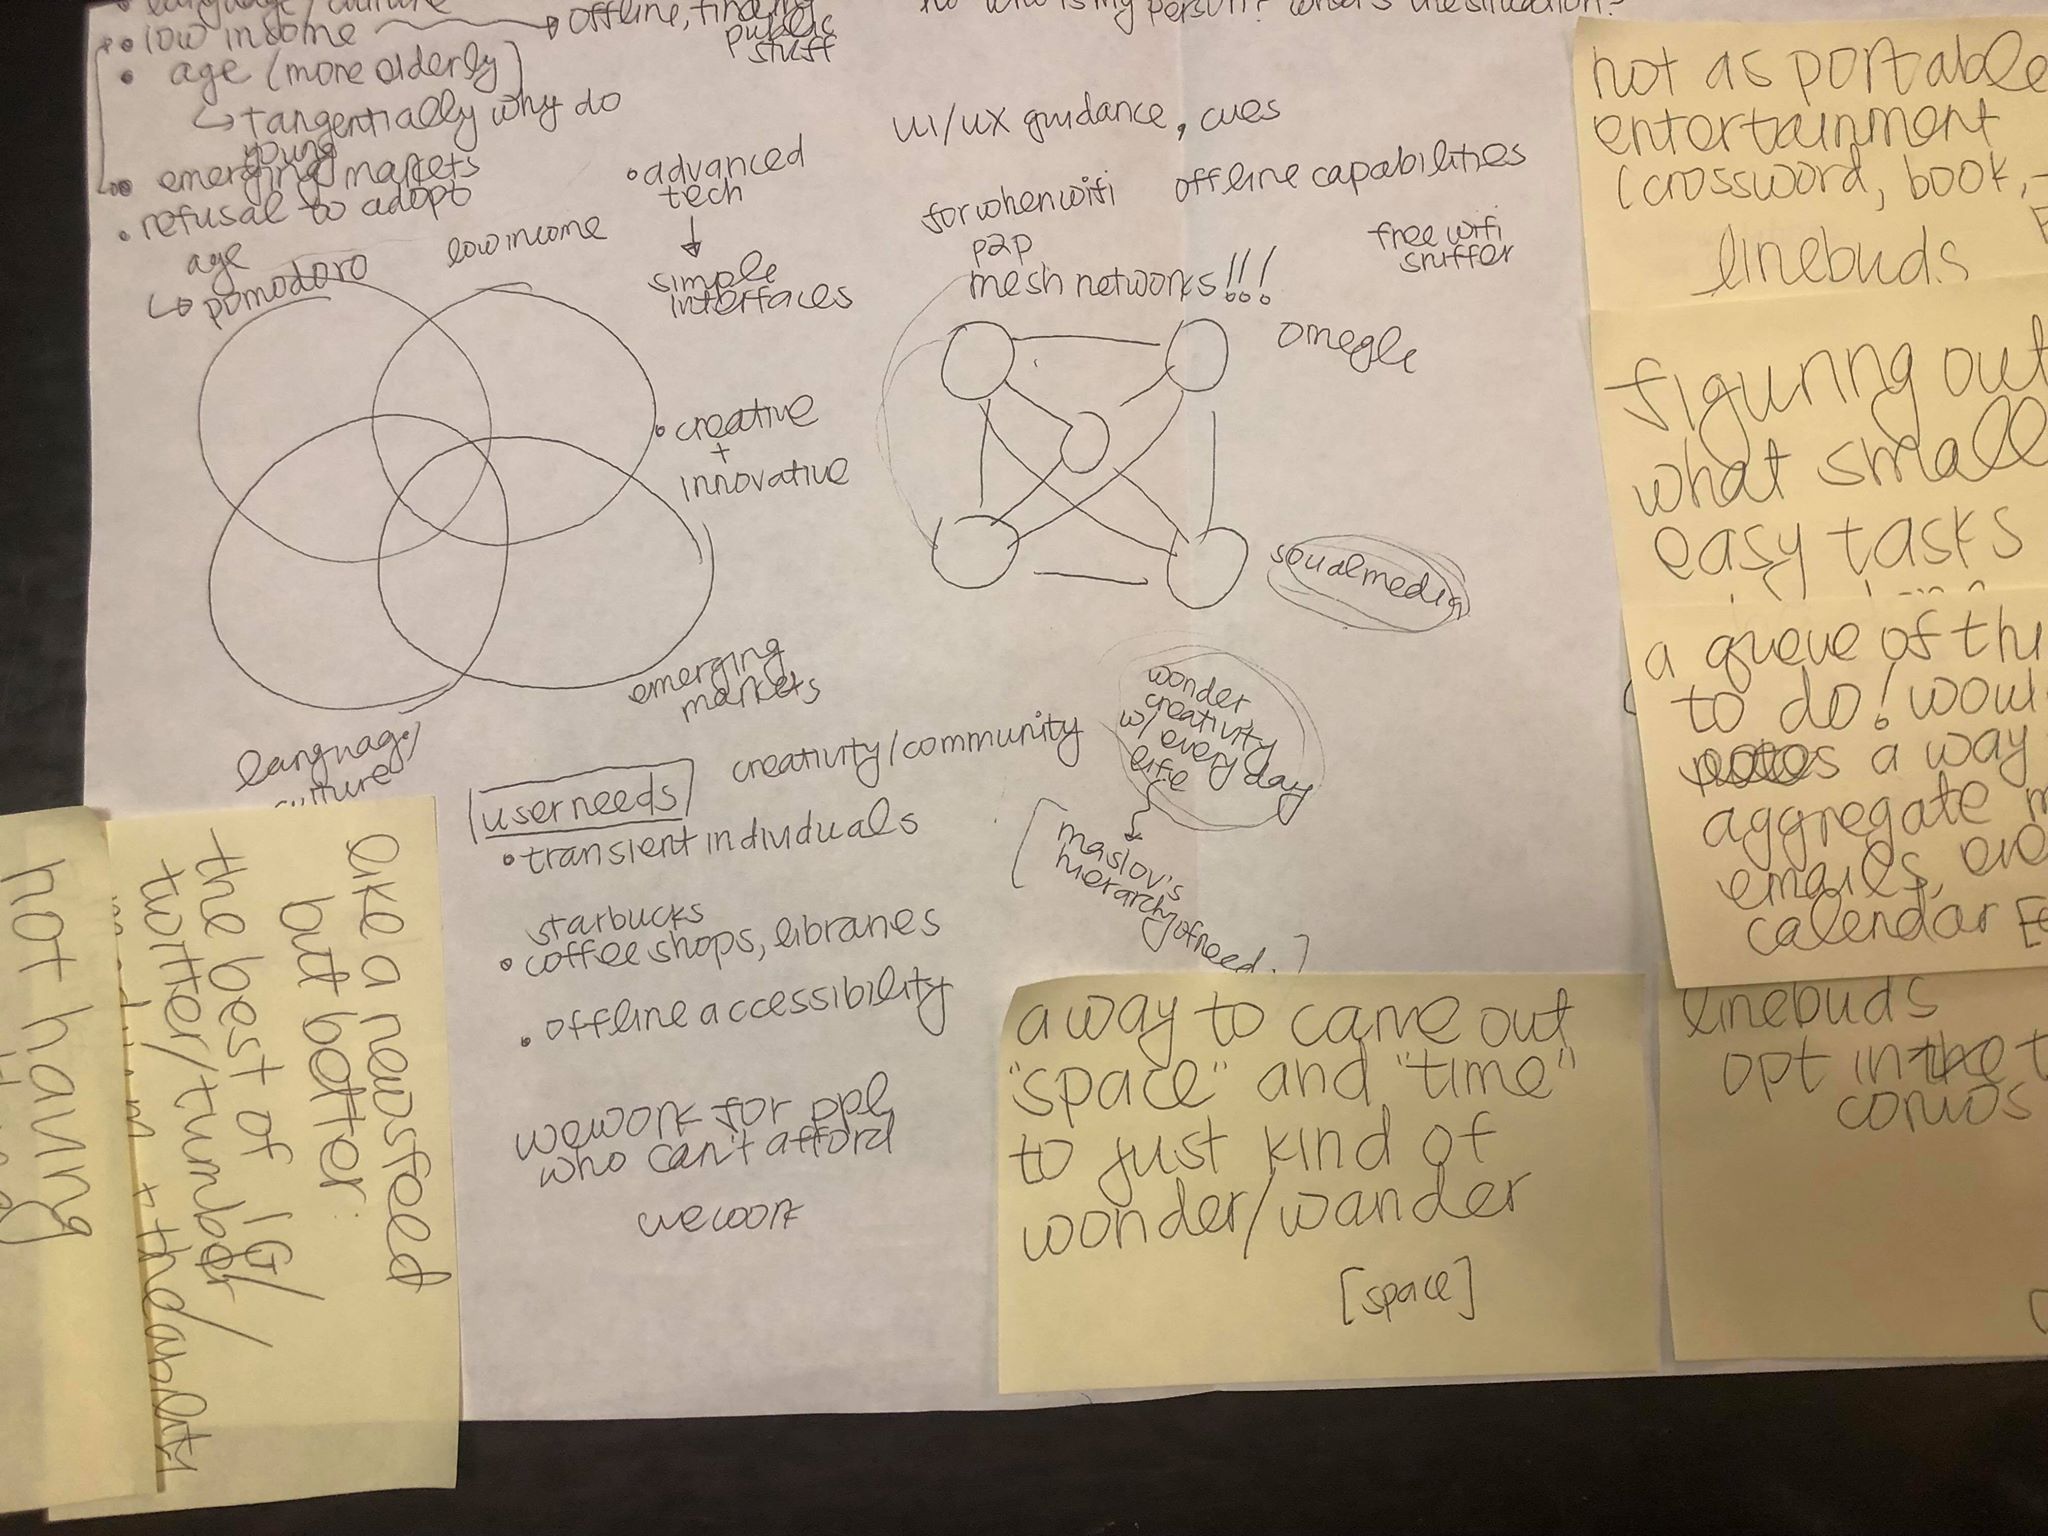 language/culture
• low income → offline, finding
public
stuff
• age (more elderly)
↳ tangentially why do
young
• emerging markets
• refusal to adopt
age
↳ pomodoro
low income
• advanced
tech
↓
simple
interfaces
• creative
+
innovative
emerging
markets
language/
culture
who is my person? what's the situation?
ui/ux guidance, cues
for when wifi
offline capabilities
p2p
mesh networks!!!
free wifi
sniffer
omegle
social media
wonder
creativity
w/ every day
life
[maslov's
hierarchy of need.]
creativity/community
user needs
• transient individuals
starbucks
• coffee shops, libraries
• offline accessibility
wework for ppl
who can't afford
wework
not as portable
entertainment
(crossword, book,
linebuds
figuring out
what small
easy tasks
a queue of
to do! would
a way
aggregate
emails,
calendar
linebuds
opt in
convos
a way to carve out
"space" and "time"
to just kind of
wonder/wander
[space]
like a newsfeed
but better:
the best of IG/
twitter/tumblr/
the/ability
not having